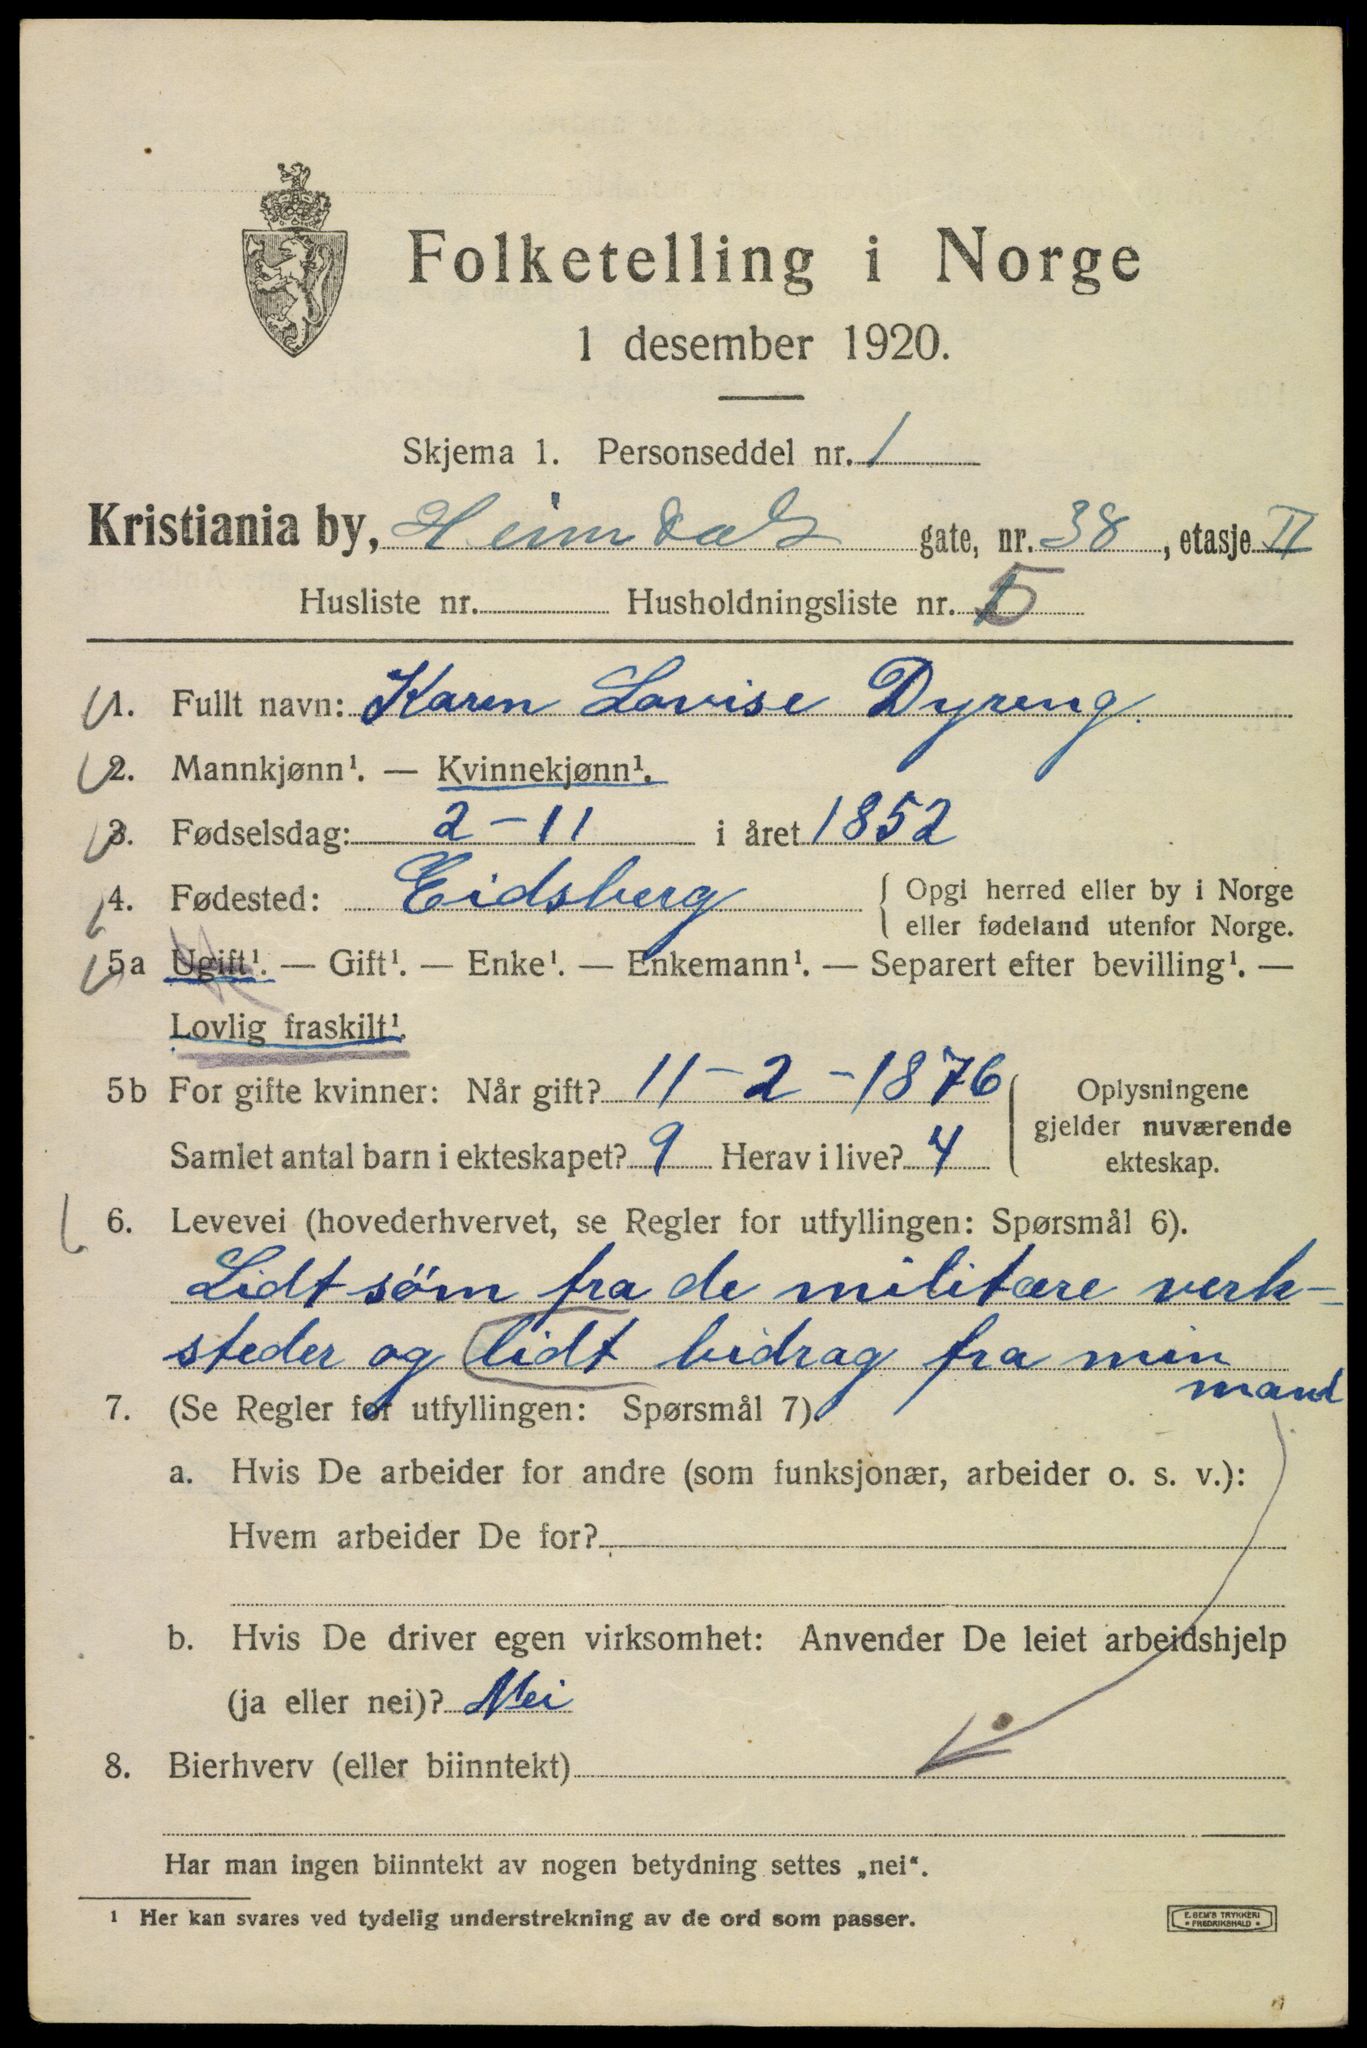 Folketelling i Norge
1 desember 1920.
Skjema 1. Personseddel nr. 1
Kristiania by, Heimdals gate, nr. 38, etasje II
Husliste nr. Husholdningsliste nr. 5
1. Fullt navn: Karen Lovise Dyreng.
2. Mannkjønn¹. — Kvinnekjønn¹.
3. Fødselsdag: 2-11 i året 1852
4. Fødested: Eidsberg { Opgi herred eller by i Norge
eller fødeland utenfor Norge.
5a Ugift¹. — Gift¹. — Enke¹. — Enkemann¹. — Separert efter bevilling¹. —
Lovlig fraskilt¹.
5b For gifte kvinner: Når gift? 11-2-1876 Oplysningene
gjelder nuværende
Samlet antal barn i ekteskapet? 9 Herav i live? 4 ekteskap.
6. Levevei (hovederhvervet, se Regler for utfyllingen: Spørsmål 6).
Lidt söm fra de militære verk-
steder og lidt bidrag fra min
mand
7. (Se Regler for utfyllingen: Spørsmål 7).
a. Hvis De arbeider for andre (som funksjonær, arbeider o. s. v.):
Hvem arbeider De for?
b. Hvis De driver egen virksomhet: Anvender De leiet arbeidshjelp
(ja eller nei)? Nei
8. Bierhverv (eller biinntekt)
Har man ingen biinntekt av nogen betydning settes „nei“.
¹ Her kan svares ved tydelig understrekning av de ord som passer.
E. SEM'S TRYKKERI
* FREDRIKSHALD *